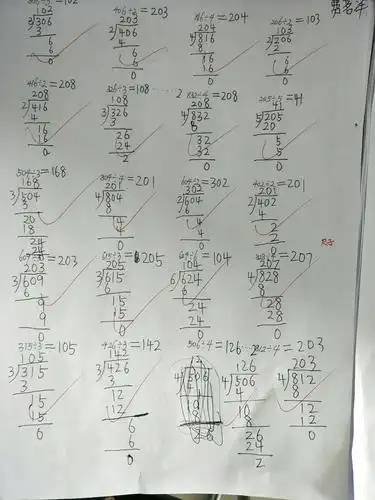 306÷3=102
406÷2=203
816÷4=204
206÷2=103
102
203
204
103
3/306
2/406
4/816
2/206
3
4
8
2
6
6
16
6
6
6
16
6
0
0
0
0
416÷2=208
326÷3=108……2
832÷4=208
205÷5=41
208
108
208
41
2/416
3/326
4/832
5/205
4
3
8
20
16
26
32
5
16
24
32
5
0
2
0
0
504÷3=168
804÷4=201
604÷2=302
402÷2=201
168
201
302
201
3/504
4/804
2/604
2/402
3
8
6
4
20
4
4
2
18
4
4
2
24
0
0
0
24
609÷3=203
615÷3=205
624÷6=104
828÷4=207
203
205
104
207
3/609
3/615
6/624
4/828
6
6
6
8
9
15
24
28
9
15
24
28
0
0
0
0
315÷3=105
426÷3=142
506÷4=126…2
812÷4=203
105
142
126
203
3/315
3/426
4/506
4/812
3
3
4
8
15
12
10
12
15
12
8
12
0
6
26
0
6
24
0
2